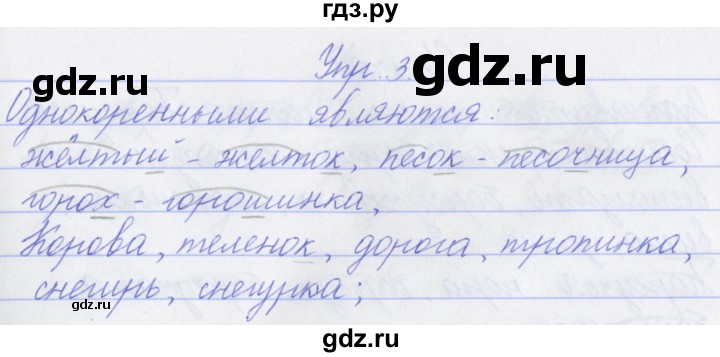 гдз.ру
gdz.ru gdz.ru
Упр. 3.
Однокоренными являются:
жёлтый - желток, песок - песочница,
горох - горошинка,
Корова, теленок, дорога, тропинка,
снегирь, снегурка;
gdz.ru gdz.ru
gdz.ru